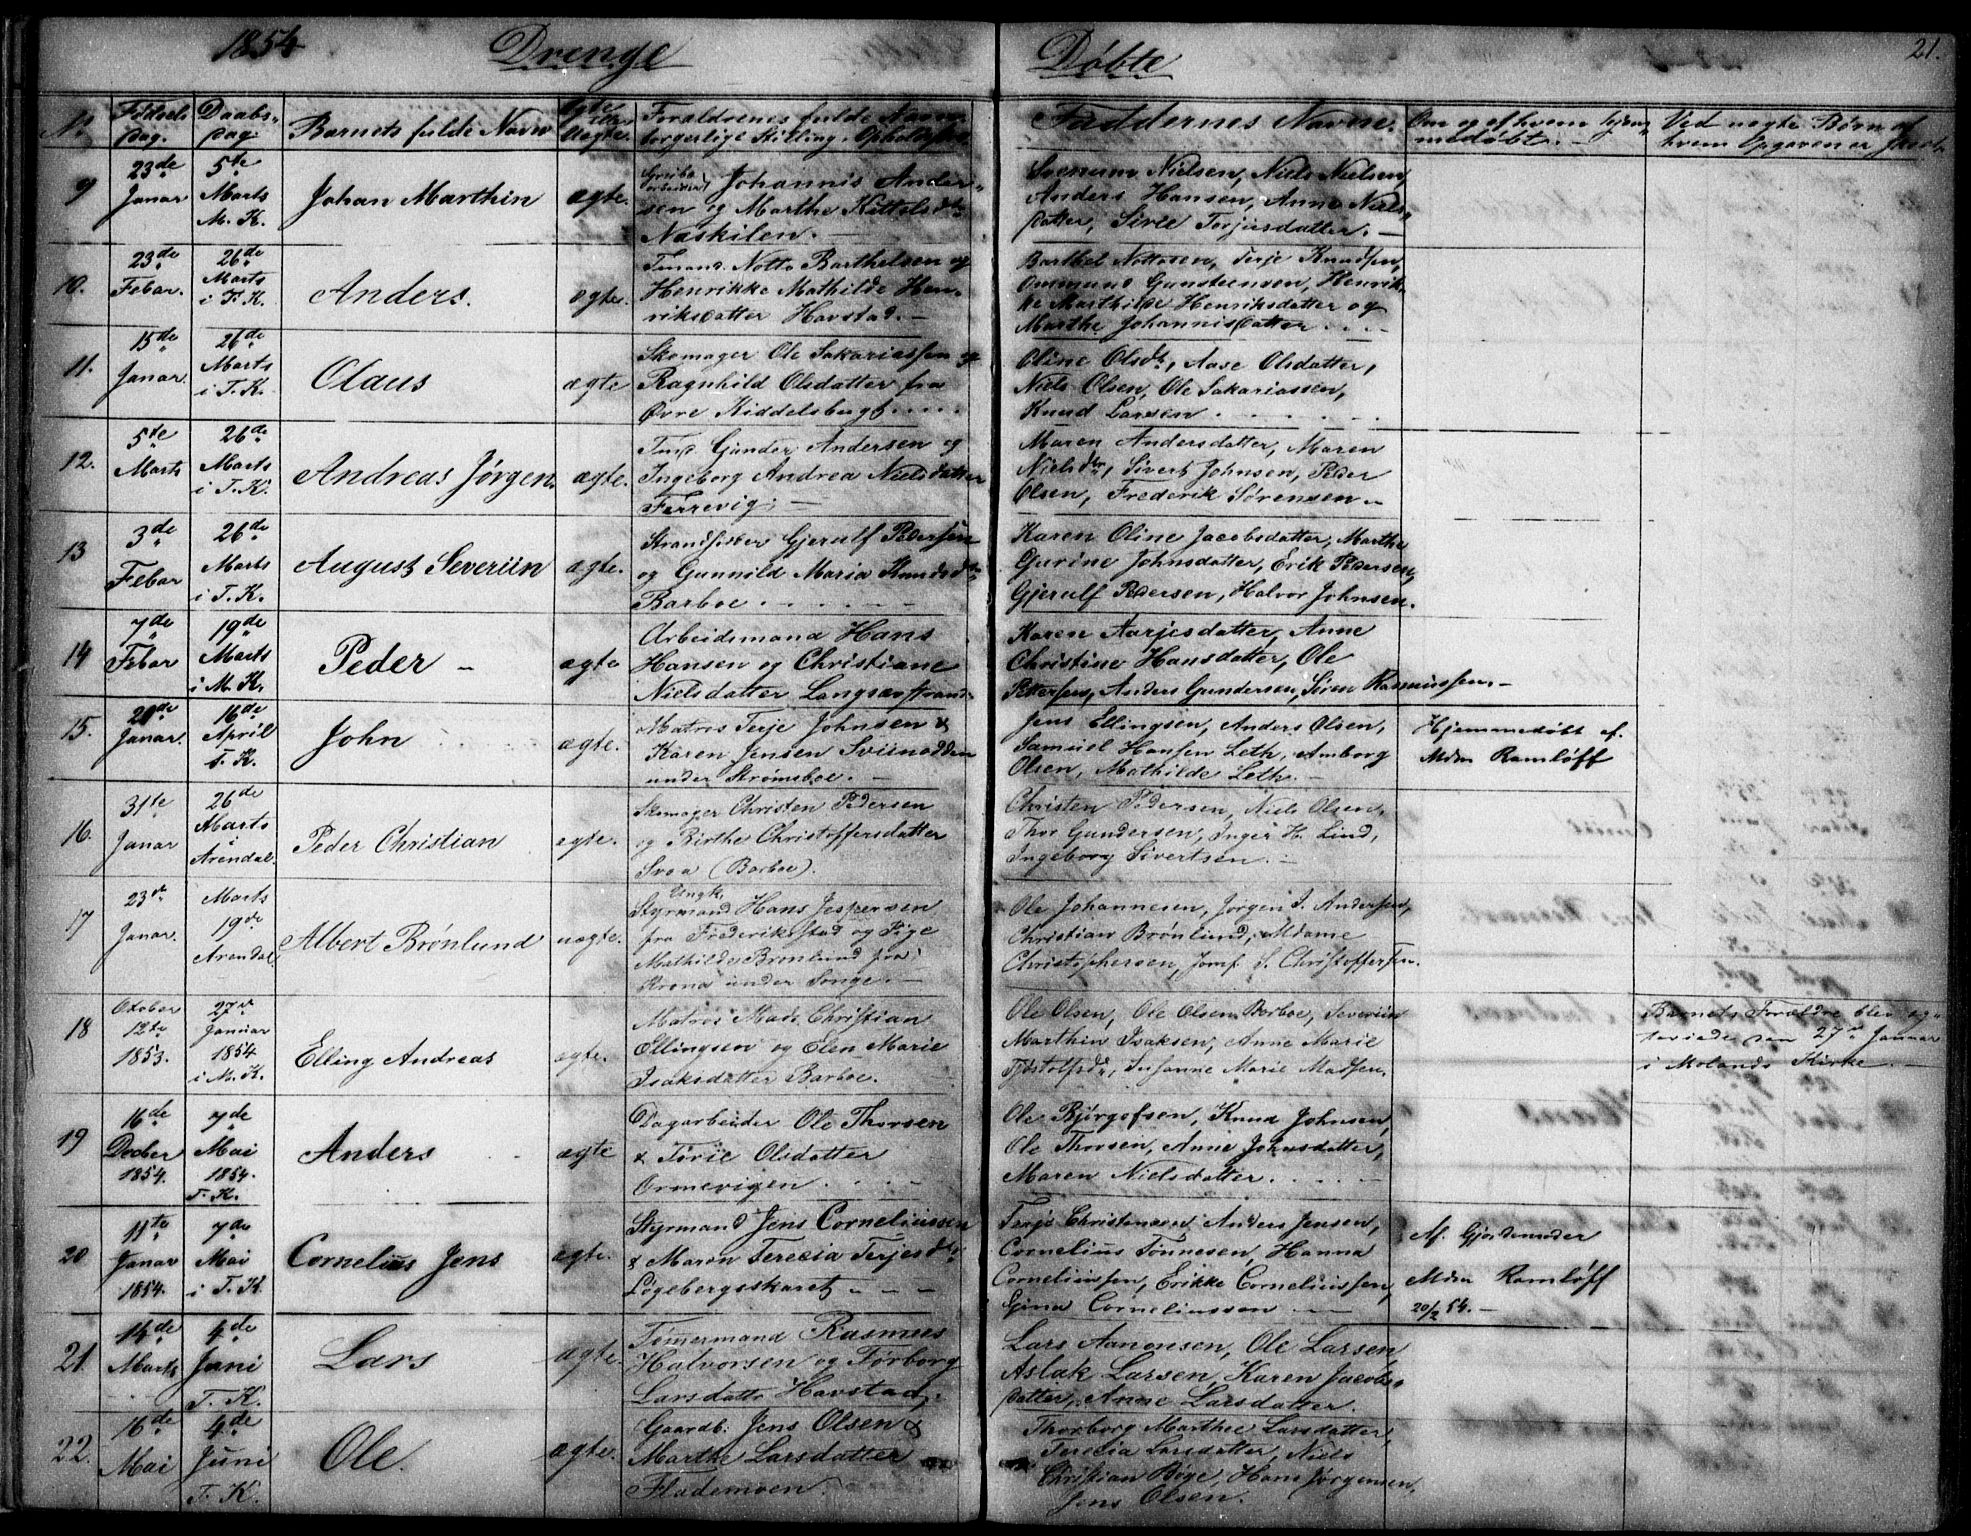 1854 Drenge Døbte 21.
No. Fødsels Dag. Daabs- Dag. Barnets fulde Navn Ægte eller Uægte. Forældrenes fulde Navn, borgerlige Stilling, Faddernes Navne. Om og af hvem hjem- medøbt. Ved uægte Børn af hvem Opgaven er
9 23de Janar 5te Marts M. K. Johan Marthin ægte.
Johannis Ander-
sen og Marthe Kittelsdtr
Naskilen.
Svenum Nielsen, Niels Nielsen,
Anders Hansen, Anne Niels-
datter, Sirie Torjusdatter.
10. 23de Febar. 26de Marts i T. K. Anders. ægte.
Tmand. Notto Barthelsen og
Henrikke Mathilde Hen-
riksdatter Havstad.
Barthel Nottosen, Terje Knudsen,
Ommund Gunsteensen, Henrik-
ke Marthilde Henriksdatter og
Marthe Johannisdatter
11. 15de Janar. 26de Marts i T. K. Olaus ægte
Skomager Ole Sakariassen og
Ragnhild Olsdatter fra
Øvre Kiddelsbugt
Oline Olsdtr, Aase Olsdatter,
Niels Olsen, Ole Sakariassen,
Knud Larsen
12. 5te Marts 26de Marts i T. K. Andreas Jørgen. ægte.
Tmd Gunder Andersen og
Ingeborg Andrea Nielsdatter
Færrevig.
Maren Andersdatter, Maren
Nielsdtr, Sivert Johnsen, Peder
Olsen, Frederik Sørensen
13 3de Febar 26de Marts i T. K. August Severiin ægte.
Strandsidder Gjerulf Pedersen
og Gunnild Maria Knudsdtr
Barboe.
Karen Oline Jacobsdatter, Marthe
Gurine Johnsdatter, Erik Pedersen,
Gjerulf Pedersen, Halvor Johnsen.
14 7de Febar 19de Marts i M. K. Peder ægte
Arbeidsmand Hans
Hansen og Christiane
Nielsdatter Langsæstrand.
Karen Aarjesdatter, Anne
Christine Hansdatter, Ole
Pettersen, Anders Gundersen, Søren Rasmussen.
15. 20de Janar. 16de April T. K. John ægte.
Matros Terje Johnsen &
Karen Jensen Sviinodden
under Strømsboe.
Jens Ellingsen, Anders Olsen,
Samuel Hansen Leth, Amborg
Olsen, Mathilde Leth.
Hjemmedøbt af.
Mdm Ramløff
16. 31te Janar 26de Marts i Arendal. Peder Christian ægte.
Skomager Christen Pedersen
og Birthe Christoffersdatter
Svaa (Barboe).
Christen Pedersen, Niels Olsen,
Thor Gundersen, Inger H. Lind,
Ingeborg Sivertsen.
17 23de Janar. Marts 19de Arendal Albert Brønlund uægte.
Ungk.
Styrmand Hans Jespersen
fra Frederikstad og Pige
Mathilde Brønlund fra
Krona under Songe.
Ole Johannesen, Jørgen J. Andersen,
Christian Brønlund, Mdame
Christophersen, Jomf. S. Christoffersen.
18 October 12te 1853. 27de Januar 1854 i M. K. Elling Andreas ægte.
Matros Mads Christian
Ellingsen og Elen Marie
Isaksdatter Barboe.
Ole Olsen, Ole Olsen Barboe, Severiin
Marthin Isaksen, Anne Marie
Tjøstolfsdtr, Susanne Marie Madsen.
Barnets Forældre blev æg-
teviede den 27de Januar
i Molands Kirke.
19 16de Decber 1854. 7de Mai 1854. T. K. Anders ægte
Dagarbeider Ole Thorsen
& Torie Olsdatter
Ormevigen
Ole Bjørgofsen, Knud Johnsen,
Ole Thorsen, Anne Johnsdatter,
Maren Nielsdatter.
20 11te Janar 1854. 7de Mai i T. K. Cornelius Jens ægte.
Styrmand Jens Corneliussen
& Maren Terecia Terjesdtr
Løgebergsskaret
Terje Christensen, Anders Jensen,
Cornelius Tønnesen, Hanna
Corneliussen, Erikke Corneliussen,
Gina Corneliussen
Af. Gjordemoder
Mdm Ramløff
20/2 54.
21. 14de Marts 4de Juni T. K. Lars ægte.
Timermand Rasmus
Halvorsen og Torborg
Larsdatte Havstad.
Lars Aanonsen, Ole Larsen,
Aslak Larsen, Karen Jacobs-
datter, Anne Larsdatter.
22. 16de Mai 4de Juni T. K. Ole. ægte.
Gaardb. Jens Olsen &
Marthe Larsdatter
Flademoen.
Thorborg Marthee Larsdatter,
Terecia Larsdatter, Niels
Christian Bøge, Hans Jørgensen,
Jens Olsen.